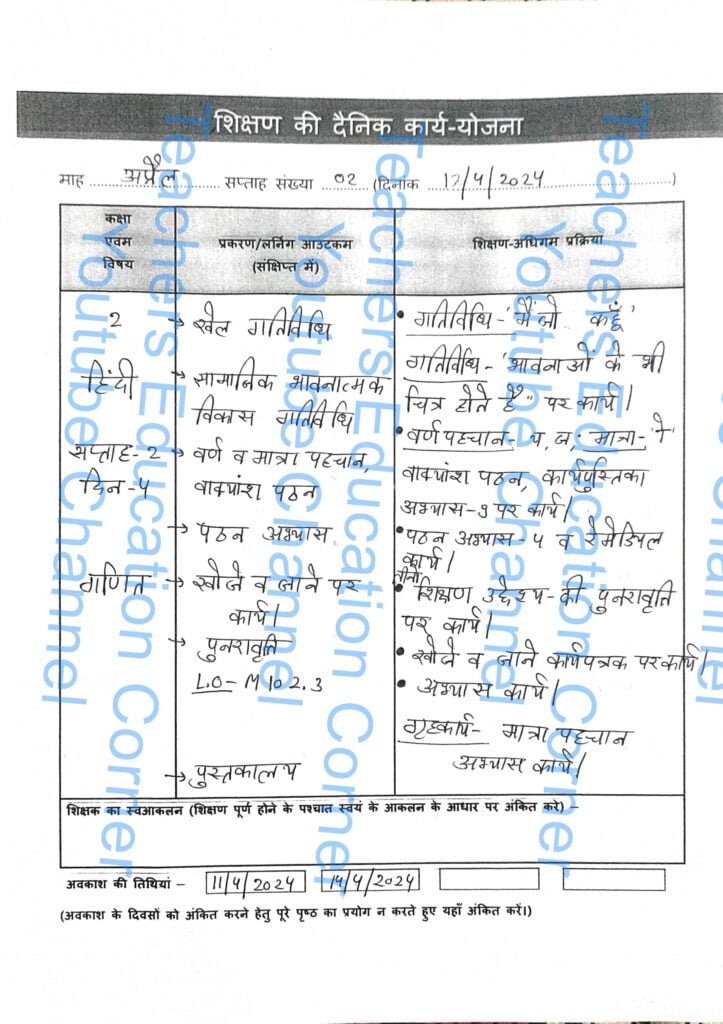 शिक्षण की दैनिक कार्य-योजना
माह अप्रैल सप्ताह संख्या 02 (दिनाक 12/4/2024)
कक्षा एवम विषय
प्रकरण/लर्निग आउटकम (संक्षिप्त में)
शिक्षण-अधिगम प्रक्रिया
2
हिंदी
सप्ताह-2
दिन-4
गणित
→ खेल गतिविधि
→ सामाजिक भावनात्मक
विकास गतिविधि
→ वर्ण व मात्रा पहचान,
वाक्यांश पठन
→ पठन अभ्यास
→ खोजें व जाने पर
कार्य।
→ पुनरावृति
L.O- M 102.3
→ पुस्तकालय
• गतिविधि- 'मैं जो कहूँ'
गतिविधि- 'भावनाओं के भी
चित्र होते हैं" पर कार्य।
• वर्ण पहचान- प, ब, मात्रा-
वाक्यांश पठन, कार्यपुस्तिका
अभ्यास-3 पर कार्य।
• पठन अभ्यास-4 व रेमेडियल
कार्य।
तीनों
• शिक्षण उद्देश्य- की पुनरावृति
पर कार्य।
• खोजें व जाने कार्यपत्रक पर कार्य।
• अभ्यास कार्य।
गृहकार्य- मात्रा पहचान
अभ्यास कार्य।
शिक्षक का स्वआकलन (शिक्षण पूर्ण होने के पश्चात स्वयं के आकलन के आधार पर अंकित करे) –
अवकाश की तिथियां – 11/4/2024 14/4/2024
(अवकाश के दिवसों को अंकित करने हेतु पूरे पृष्ठ का प्रयोग न करते हुए यहाँ अंकित करें।)
Teachers Education Corner
Youtube Channel
Teachers Education Corner
Youtube Channel
Teachers Education Corner
Youtube Channel